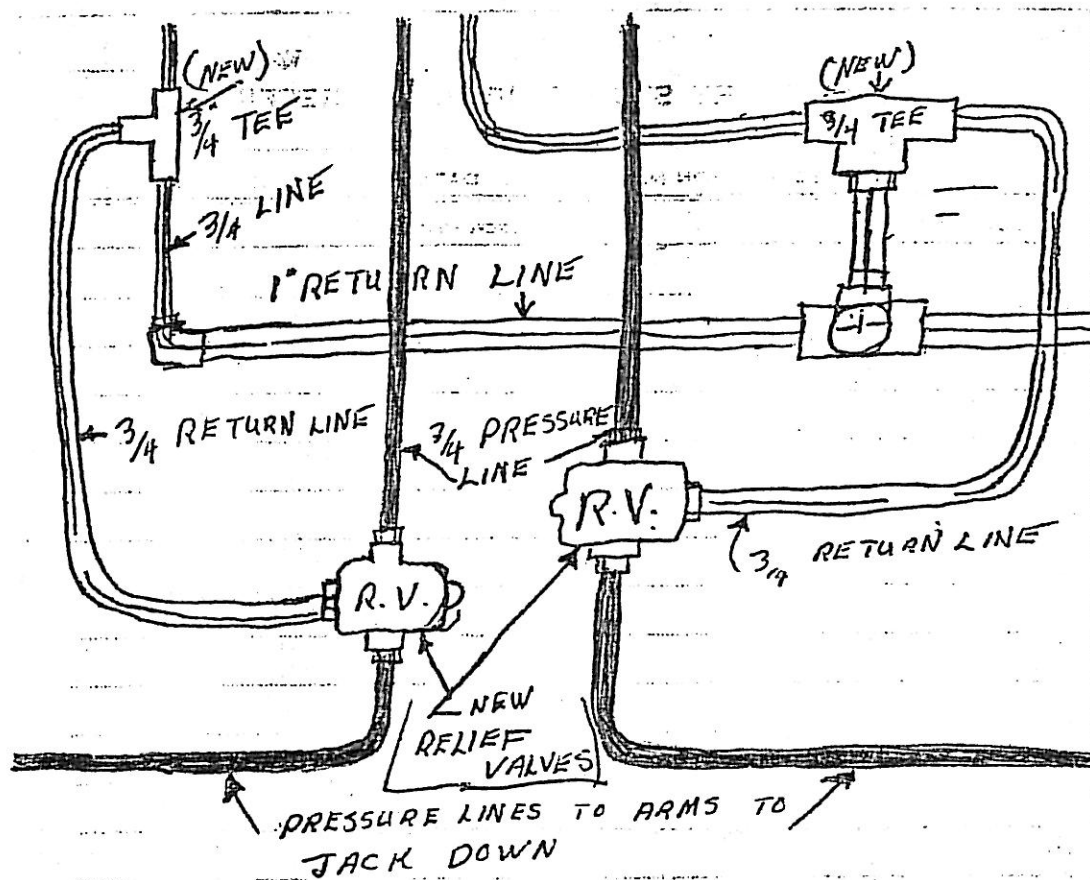 (NEW)
3/4" TEE
(NEW)
3/4 TEE
3/4 LINE
1" RETURN LINE
3/4 RETURN LINE
3/4 PRESSURE
LINE
R.V.
3/4 RETURN LINE
R.V.
NEW
RELIEF
VALVES
PRESSURE LINES TO ARMS TO
JACK DOWN